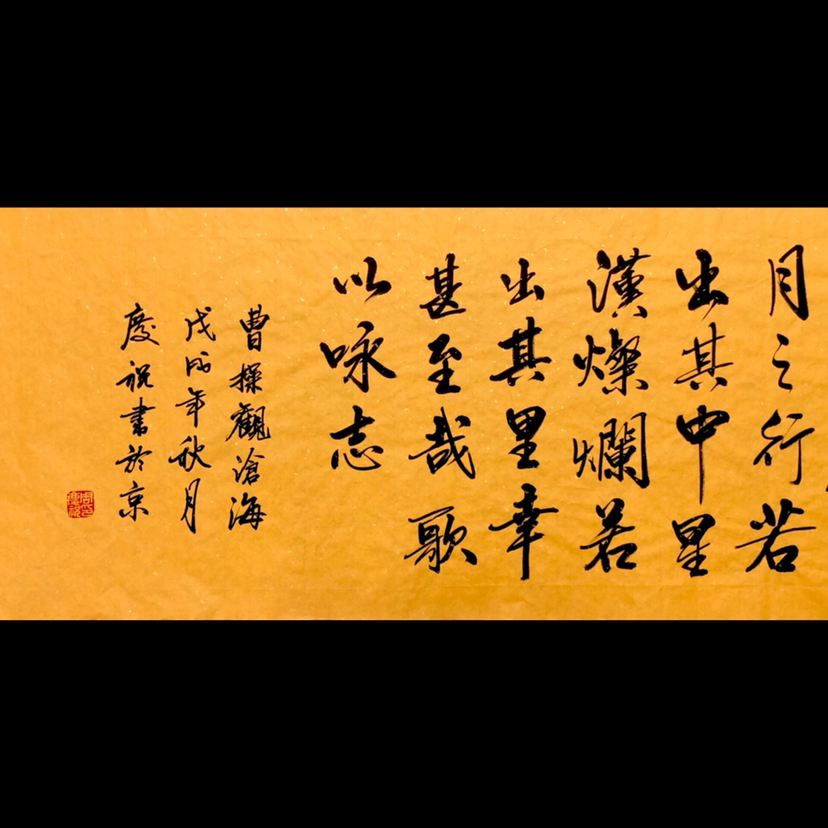 月之行若
出其中星
漢燦爛若
出其里幸
甚至哉歌
以咏志
曹操觀滄海
戊戌年秋月
慶祝書於京